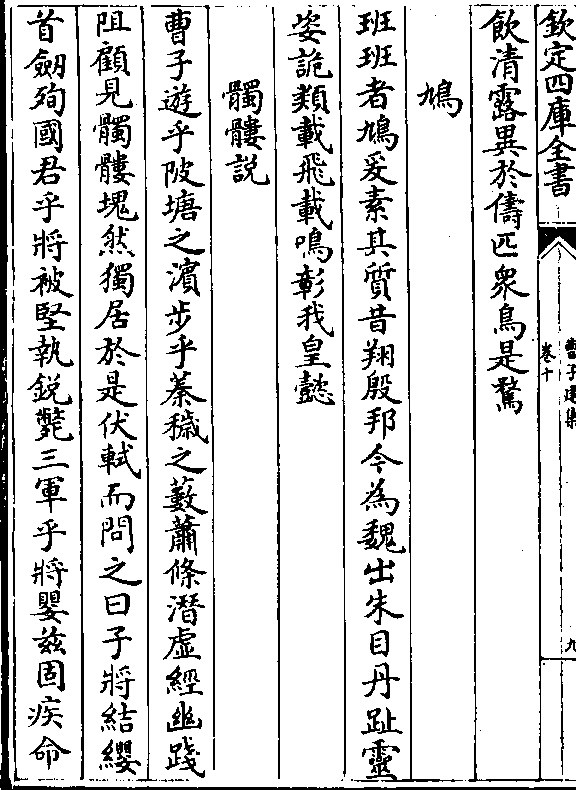 欽定四庫全書
曹子建集
卷十
九
飲清露異於儔匹衆鳥是驚
鳩
班班者鳩爰素其質昔翔殷邦今為魏出朱目丹趾靈
姿詭類載飛載鳴彰我皇懿
髑髏說
曹子遊乎陂塘之濱步乎蓁穢之藪蕭條潛虛經幽踐
阻顧見髑髏塊然獨居於是伏軾而問之曰子將結纓
首劒殉國君乎將被堅執鋭斃三軍乎將嬰兹固疾命